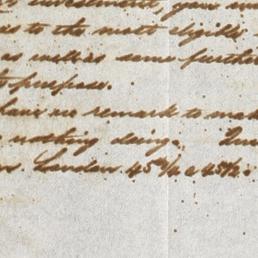 investment, gave
as to the most eligible
as well as some further
purpose.
have no remark to make
nothing doing.
London 45 1/4 a 45 1/2.